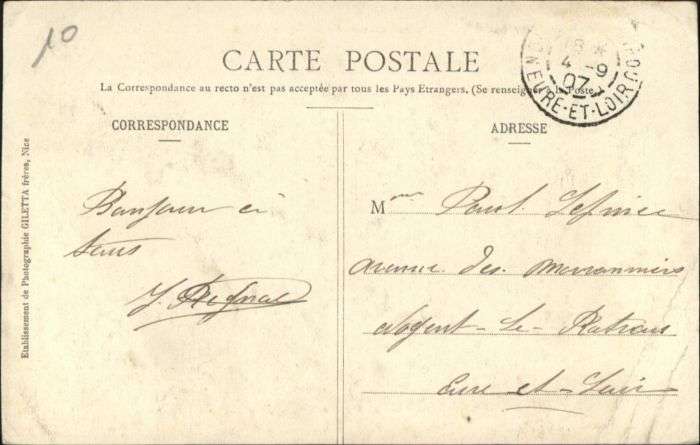 10
CARTE POSTALE
La Correspondance au recto n'est pas acceptée par tous les Pays Etrangers. (Se renseigner à la Poste.)
4 -9
07
EURE-ET-LOIR
CORRESPONDANCE
Bonjour à
tous
ADRESSE
Mme Paul
avenue des Marronniers
Nogent-le-Rotrou
Eure-et-Loir
Etablissement de Photographie GILETTA frères, Nice